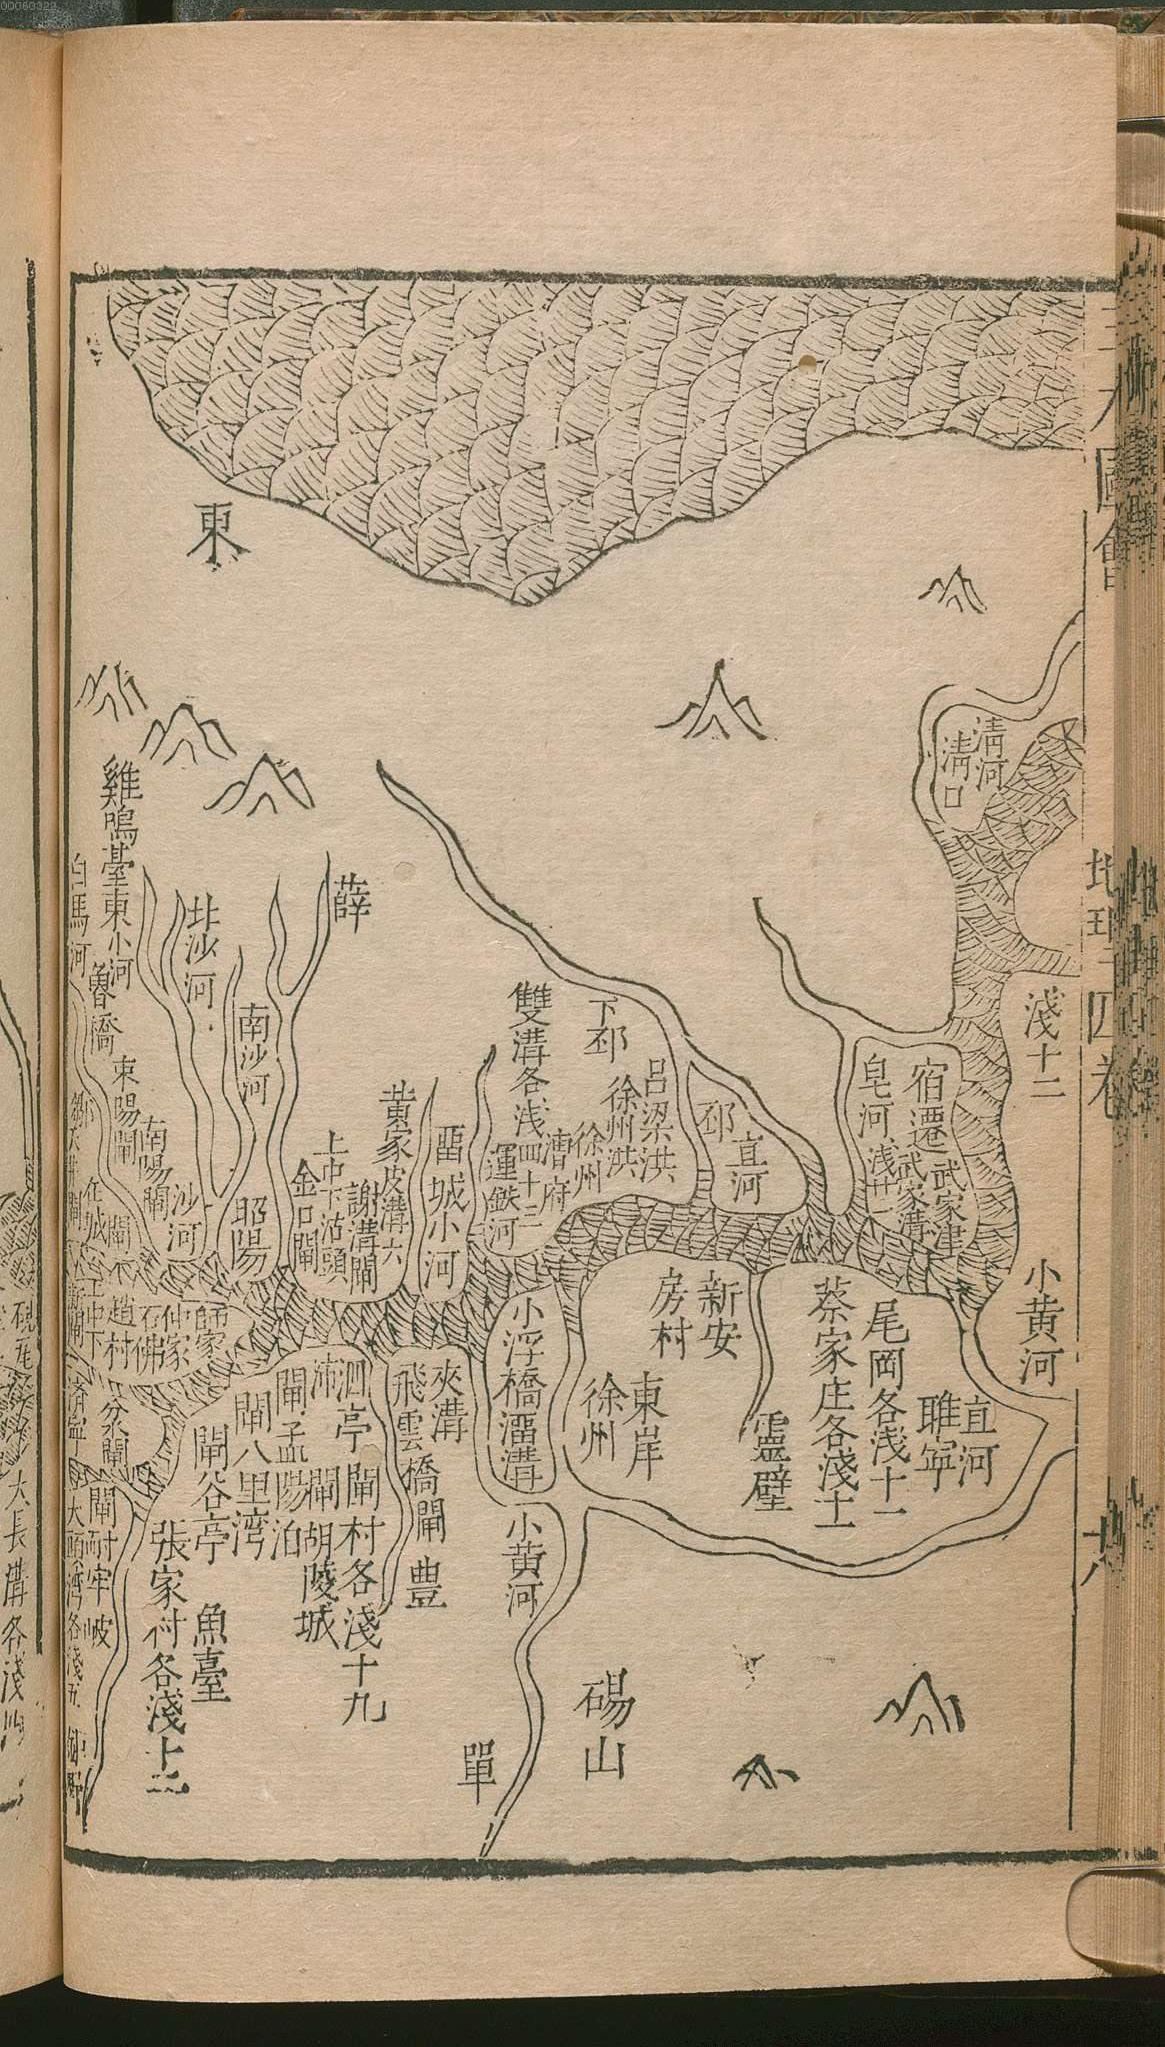 00060322
三才圖會
地理二四卷
東
清河
清口
淺十二
小黃河
宿遷
武家津
武家溝
皂河
淺十一
邳
直河
下邳
呂梁洪
徐州洪
徐州
漕府
雙溝各淺四十二
運鉄河
薛
留城小河
黃家
皮溝六
謝溝閘
上中下沽頭
金口閘
昭陽
南沙河
北沙河
沙河
南陽閘
雞鳴臺東小河
魯橋
白馬河
直河
睢寧
尾岡各淺十一
蔡家庄各淺十一
靈壁
新安
房村
東岸
徐州
小浮橋溜溝
小黃河
碭山
單
夾溝
飛雲橋閘
豊
泗亭
閘村各淺十九
沛
閘
胡陵城
閘孟陽泊
閘八里湾
閘谷亭
魚臺
張家村各淺十二
師家
仲家
石佛
趙村
分閘
濟寧
閘耐牢坡
大長溝各淺